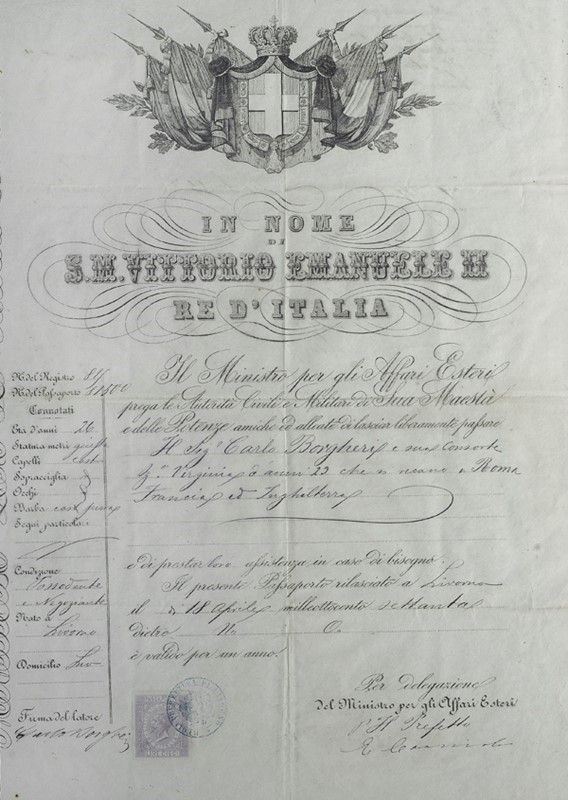 IN NOME
DI
S.M. VITTORIO EMANUELE II
RE D'ITALIA
N. del Registro 815
N. del Passaporto
Connotati
Età d'anni 26
Statura metri giusta
Capelli Cast
Sopracciglia
Occhi
Barba
Segni particolari
Condizione
Possidente
e Negoziante
Nato a
Livorno
Domicilio Liv
Firma del latore
Carlo Borgheri
Il Ministro per gli Affari Esteri
prega le Autorità Civili e Militari di Sua Maestà
e delle Potenze amiche ed alleate di lasciar liberamente passare
Il Sigr Carlo Borgheri e sua Consorte
Virginia d'anni 23 che si recano a Roma
Francia ed Inghilterra
e di prestar loro assistenza in caso di bisogno.
Il presente Passaporto rilasciato a Livorno
il dì 18 Aprile milleottocento settanta
dietro
è valido per un anno.
Per delegazione
del Ministro per gli Affari Esteri
Il Prefetto